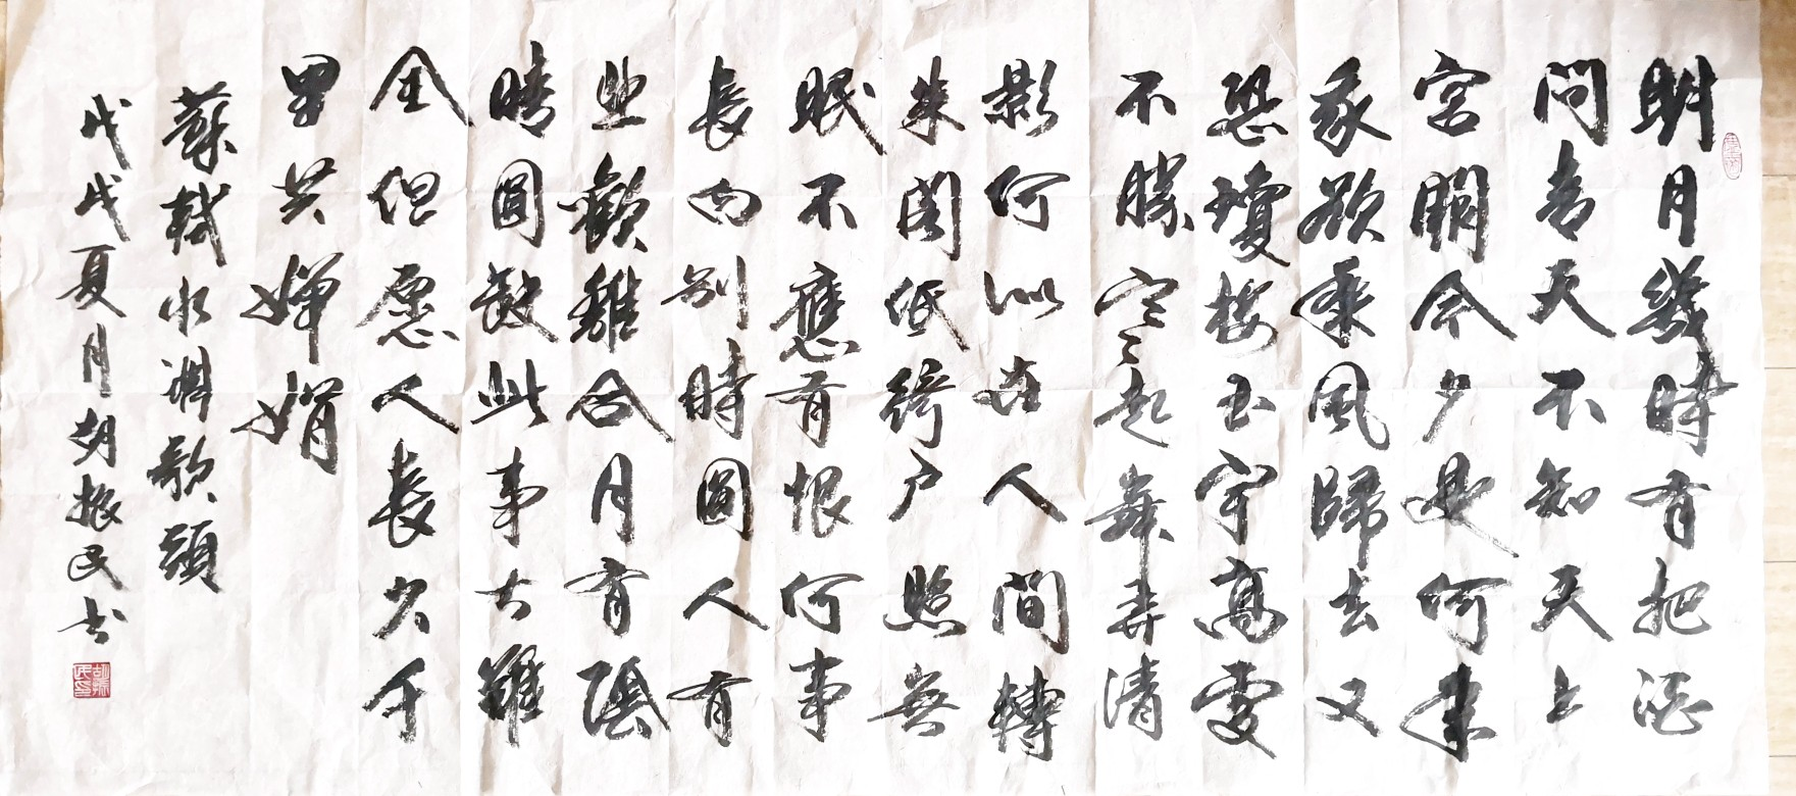 明月幾時有把酒
問青天不知天上
宮闕今夕是何年
我欲乘風歸去又
恐瓊樓玉宇高處
不勝寒起舞弄清
影何似在人間轉
朱閣低綺户照無
眠不應有恨何事
長向别時圓人有
悲歡離合月有陰
晴圓缺此事古難
全但愿人長久千
里共嬋娟
蘇軾水調歌頭
戊戌夏月胡振民书
胡振民印